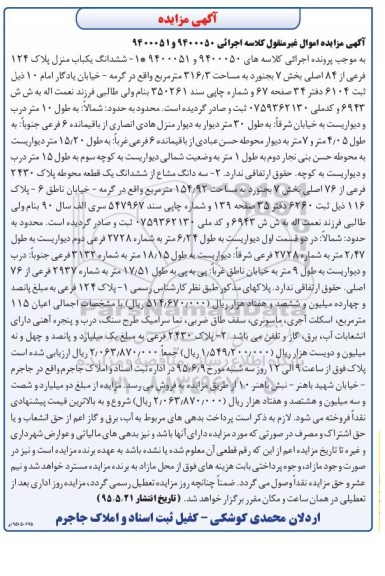 آگهی مزایده
آگهی مزایده اموال غیرمنقول کلاسه اجرائی ۹۴۰۰۰۵۰ و ۹۴۰۰۰۵۱
به موجب پرونده اجرائی کلاسه های ۹۴۰۰۰۵۰ و ۹۴۰۰۰۵۱ *۱- ششدانگ یکباب منزل پلاک ۱۲۴
فرعی از ۸۴ اصلی بخش ۷ بجنورد به مساحت ۳۱۶/۳ مترمربع واقع در گرمه - خیابان یادگار امام ۱۰ ذیل
ثبت ۶۱۰۴ دفتر ۳۴ صفحه ۶۷ و شماره چاپی سند ۳۵۰۲۶۱ بنام ولی طالبی فرزند نعمت اله به ش ش
۶۹۴۳ و کدملی ۰۷۵۹۳۶۲۱۳۰ ثبت و صادر گردیده است. محدود به حدود: شمالاً: به طول ۱۰ متر درب
و دیواریست به خیابان شرقاً: به طول ۳۰ متر دیوار به دیوار منزل هادی انصاری از باقیمانده ۶ فرعی جنوباً: به
طول ۴/۰۵ متر و ۷ متر به دیوار محوطه حسن عبادی از باقیمانده ۶ فرعی غرباً: به طول ۱۵/۲۰ متر دیواریست
به محوطه حسن بنی نجار دوم به طول ۱ متر به وضعیت شمالی دیواریست به کوچه سوم به طول ۱۵ متر درب
و دیواریست به کوچه. حقوق ارتفاقی ندارد. ۲- سه دانگ مشاع از ششدانگ یک قطعه محوطه پلاک ۲۴۳۰
فرعی از ۷۶ اصلی بخش ۷ بجنورد به مساحت ۱۵۴/۹۲ مترمربع واقع در گرمه - خیابان ناطق ۶ - پلاک
۱۱۶ ذیل ثبت ۶۲۶۰ دفتر ۳۵ صفحه ۱۳۹ و شماره چاپی سند ۵۴۷۹۶۷ سری الف سال ۹۰ بنام ولی
طالبی فرزند نعمت اله به ش ش ۶۹۴۳ و کد ملی ۰۷۵۹۳۶۲۱۳۰ ثبت و صادر گردیده است. محدود به
حدود: شمالاً: در دو قسمت اول دیواریست به طول ۶/۲۴ متر به شماره ۲۷۲۸ فرعی دوم دیواریست به طول
۲/۴۷ متر به شماره ۲۷۲۸ فرعی شرقاً: دیواریست به طول ۱۸/۱۵ متر به شماره ۳۱۳۲ فرعی جنوباً: درب
و دیواریست به طول ۹ متر به خیابان ناطق غرباً: پی به پی به طول ۱۷/۵۱ متر به شماره ۲۹۳۷ فرعی از ۷۶
اصلی. حقوق ارتفاقی ندارد. پلاکهای مذکور طبق نظر کارشناس رسمی ۱- پلاک ۱۲۴ فرعی به مبلغ پانصد
و چهارده میلیون و ششصد و هفتاد هزار ریال (۵۱۴/۶۷۰/۰۰۰ ریال) با مشخصات اجمالی اعیان ۱۱۵
مترمربع، اسکلت آجری، ماسونری، سقف طاق ضربی، نما سرامیک طرح سنگ، درب و پنجره آهنی دارای
انشعابات آب، برق، گاز و تلفن می باشد. ۲- پلاک ۲۴۳۰ فرعی به مبلغ یک میلیارد و پانصد و چهل و نه
میلیون و دویست هزار ریال (۱/۵۴۹/۲۰۰/۰۰۰ ریال) جمعاً ۲/۰۶۳/۸۷۰/۰۰۰ ریال ارزیابی شده است
پلاک فوق از ساعت ۹ الی ۱۲ روز سه شنبه مورخ ۹۵/۶/۹ در اداره ثبت اسناد و املاک جاجرم واقع در جاجرم
- خیابان شهید باهنر - نبش باهنر ۱۰ از طریق مزایده به فروش می رسد. مزایده از مبلغ دو میلیارد و شصت
و سه میلیون و هشتصد و هفتاد هزار ریال (۲/۰۶۳/۸۷۰/۰۰۰ ریال) شروع و به بالاترین قیمت پیشنهادی
نقداً فروخته می شود. لازم به ذکر است پرداخت بدهی های مربوط به آب، برق و گاز اعم از حق انشعاب و یا
حق اشتراک و مصرف در صورتی که مورد مزایده دارای آنها باشد و نیز بدهی های مالیاتی و عوارض شهرداری
و غیره تا تاریخ مزایده اعم از این که رقم قطعی آن معلوم شده یا نشده باشد به عهده برنده مزایده است و نیز در
صورت وجود مازاد، وجوه پرداختی بابت هزینه های فوق از محل مازاد به برنده مزایده مسترد خواهد شد و نیم
عشر و حق مزایده نقداً وصول می گردد. ضمناً چنانچه روز مزایده تعطیل رسمی گردد، مزایده روز اداری بعد از
تعطیلی در همان ساعت و مکان مقرر برگزار خواهد شد. (تاریخ انتشار ۹۵.۵.۲۱)
اردلان محمدی کوشکی - کفیل ثبت اسناد و املاک جاجرم